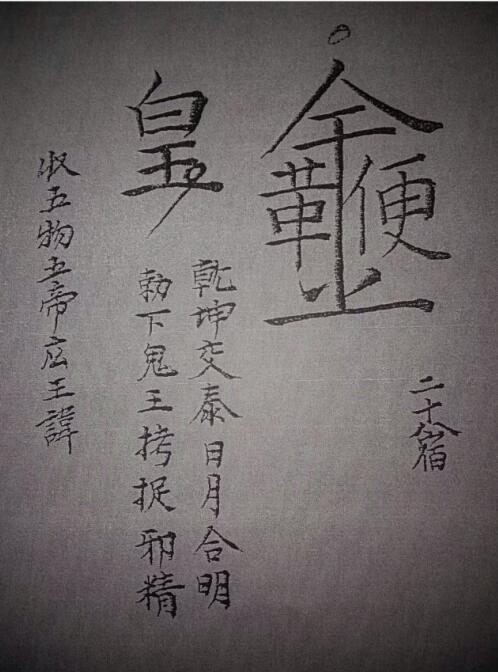 二十八宿
乾坤交泰日月合明
勅下鬼王拷捉邪精
収五物五帝王諱